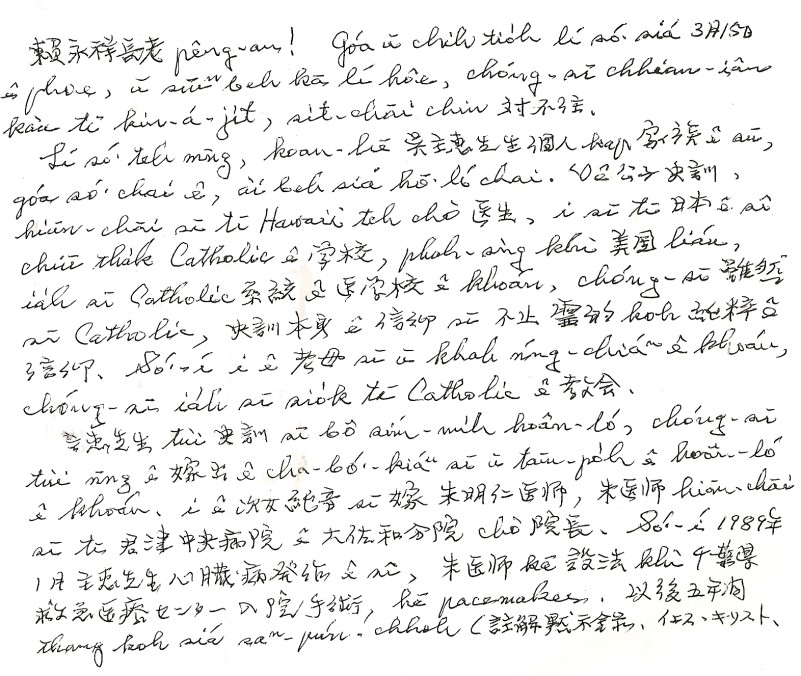 賴永祥長老 pêng-an! Góa ū chih-tio̍h lí só͘ siá 3月15日
ê phoe, ū siūⁿ beh kā lí hôe, chóng-sī chhiân-iân
kàu tī kin-á-ji̍t, si̍t-chāi chin 対不住.
Lí só͘ teh mn̄g, koan-hē 吳主惠先生個人 kap 家族 ê sū,
góa só͘ chai ê, ài beh siá hō͘ lí chai. 公子 史訓,
hiān-chāi sī tī Hawaii teh chò 医生, i sī tī 日本 ê sî
chiū tha̍k Catholic ê 学校, phah-sǹg khì 美国 liáu,
iáh sī Catholic 系統 ê 医学校 ê khoán, chóng-sī 雖然
sī Catholic, 史訓本身 ê 信仰 sī 不止 靈的 koh 純粹 ê
信仰. Só͘-í i ê 老母 sī ū khah ńg-chiáⁿ ê khoán,
chóng-sī iáh sī sio̍k tī Catholic ê 教会.
主惠先生 tùi 史訓 sī bô sím-mih hoân-ló, chóng-sī
tùi nn̄g ê 嫁出 ê cha-bó͘-kiáⁿ sī ū tām-po̍h ê hoân-ló
ê khoán. i ê 次女 純音 sī 嫁 朱明仁医师, 朱医师 hiān-chāi
sī tī 君津中央病院 ê 大佐和分院 chò 院長. Só͘-í 1989年
1月 主惠先生 心臓病発作 ê sî, 朱医师 kā 設法 khì 千葉県
救急医療センター 入院 手術, hē pacemaker. 以後五年間
thang koh siá saⁿ-pún chheh (註解黙示録、イエス・キリスト、